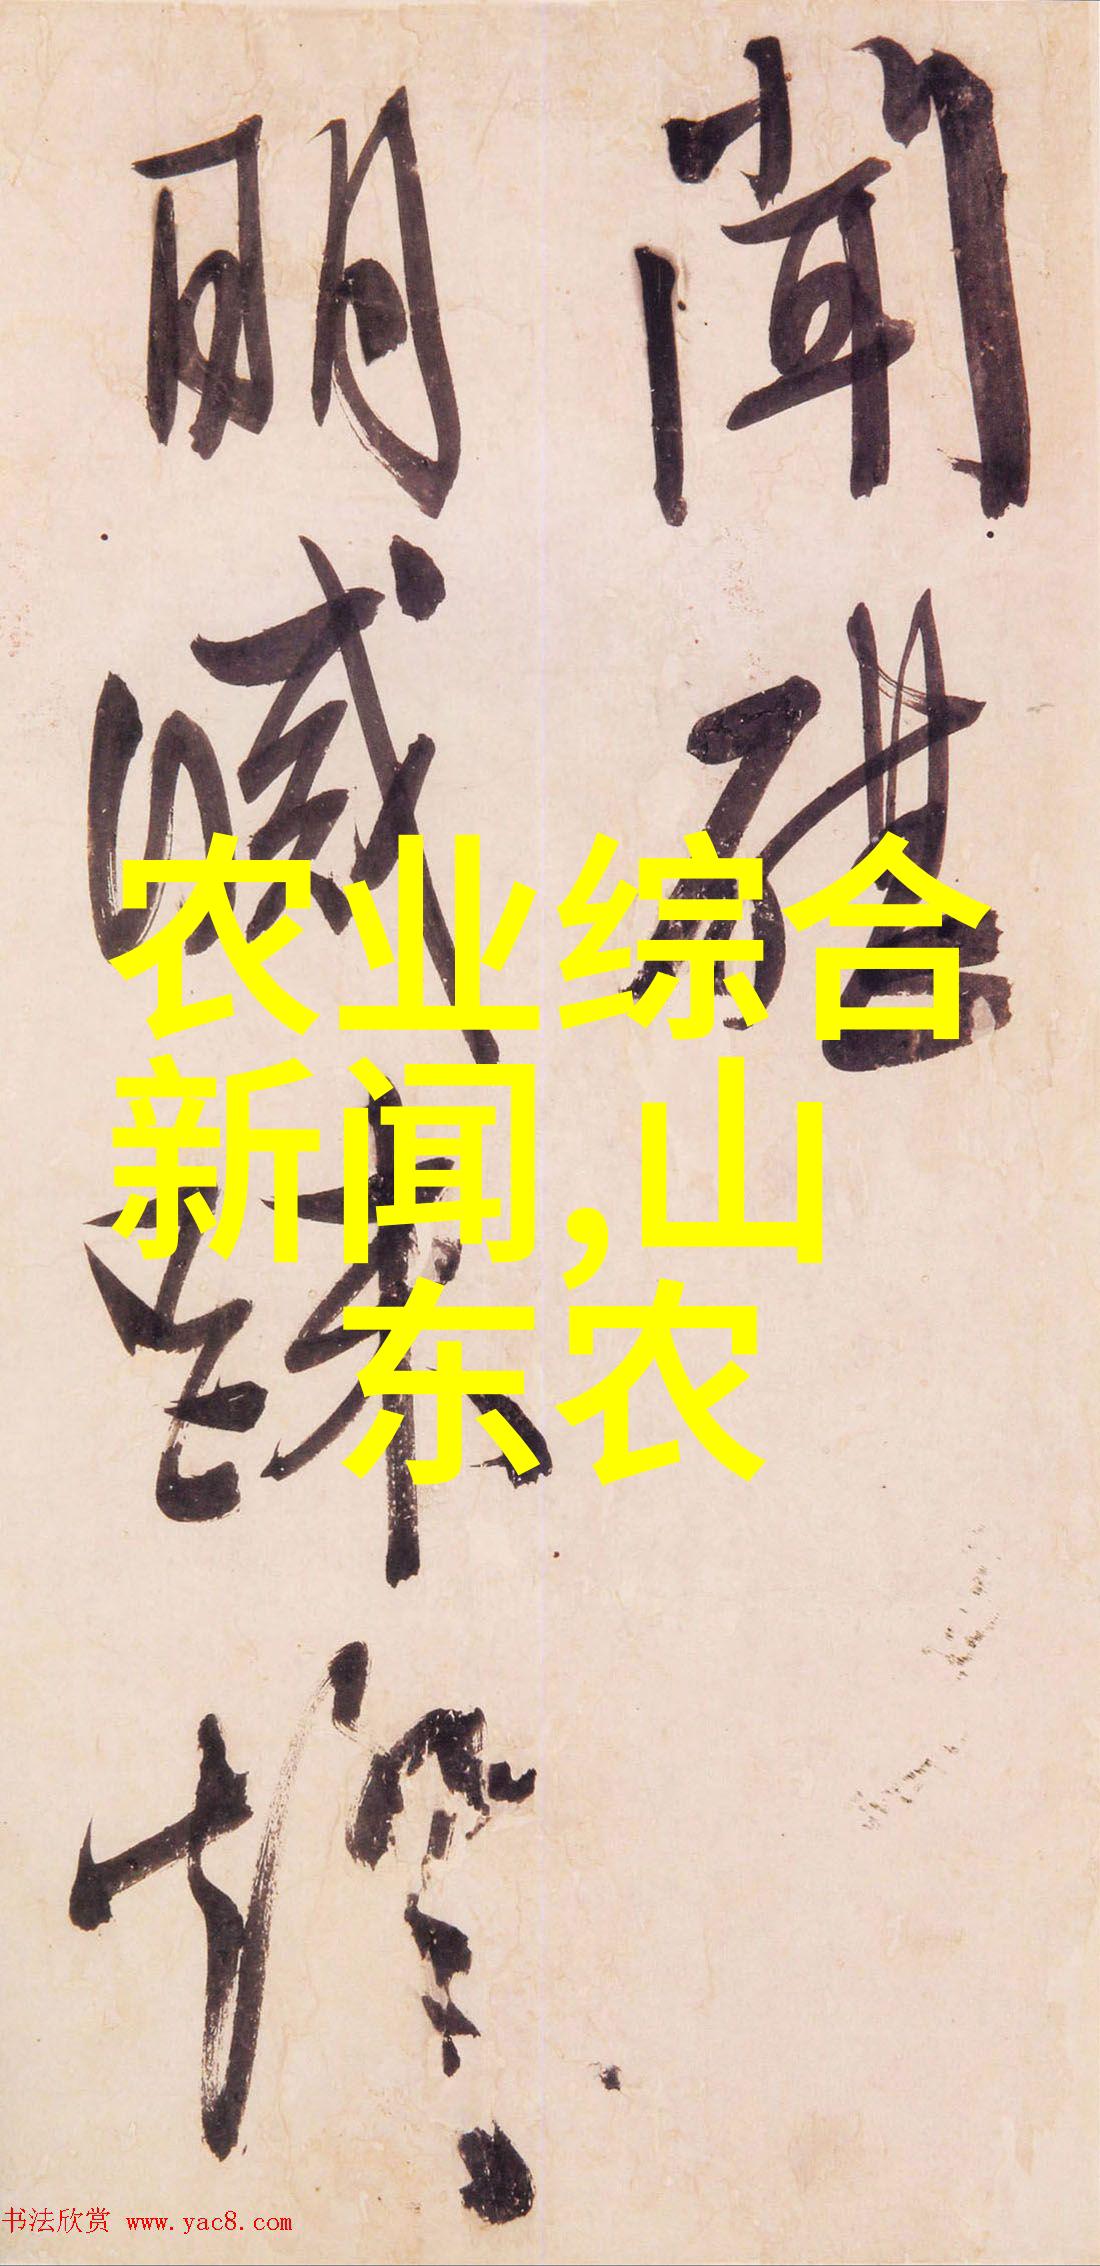 聞碪
明滅踈燈
农业综合
新闻,山
东农
书法欣赏 www.yac8.com